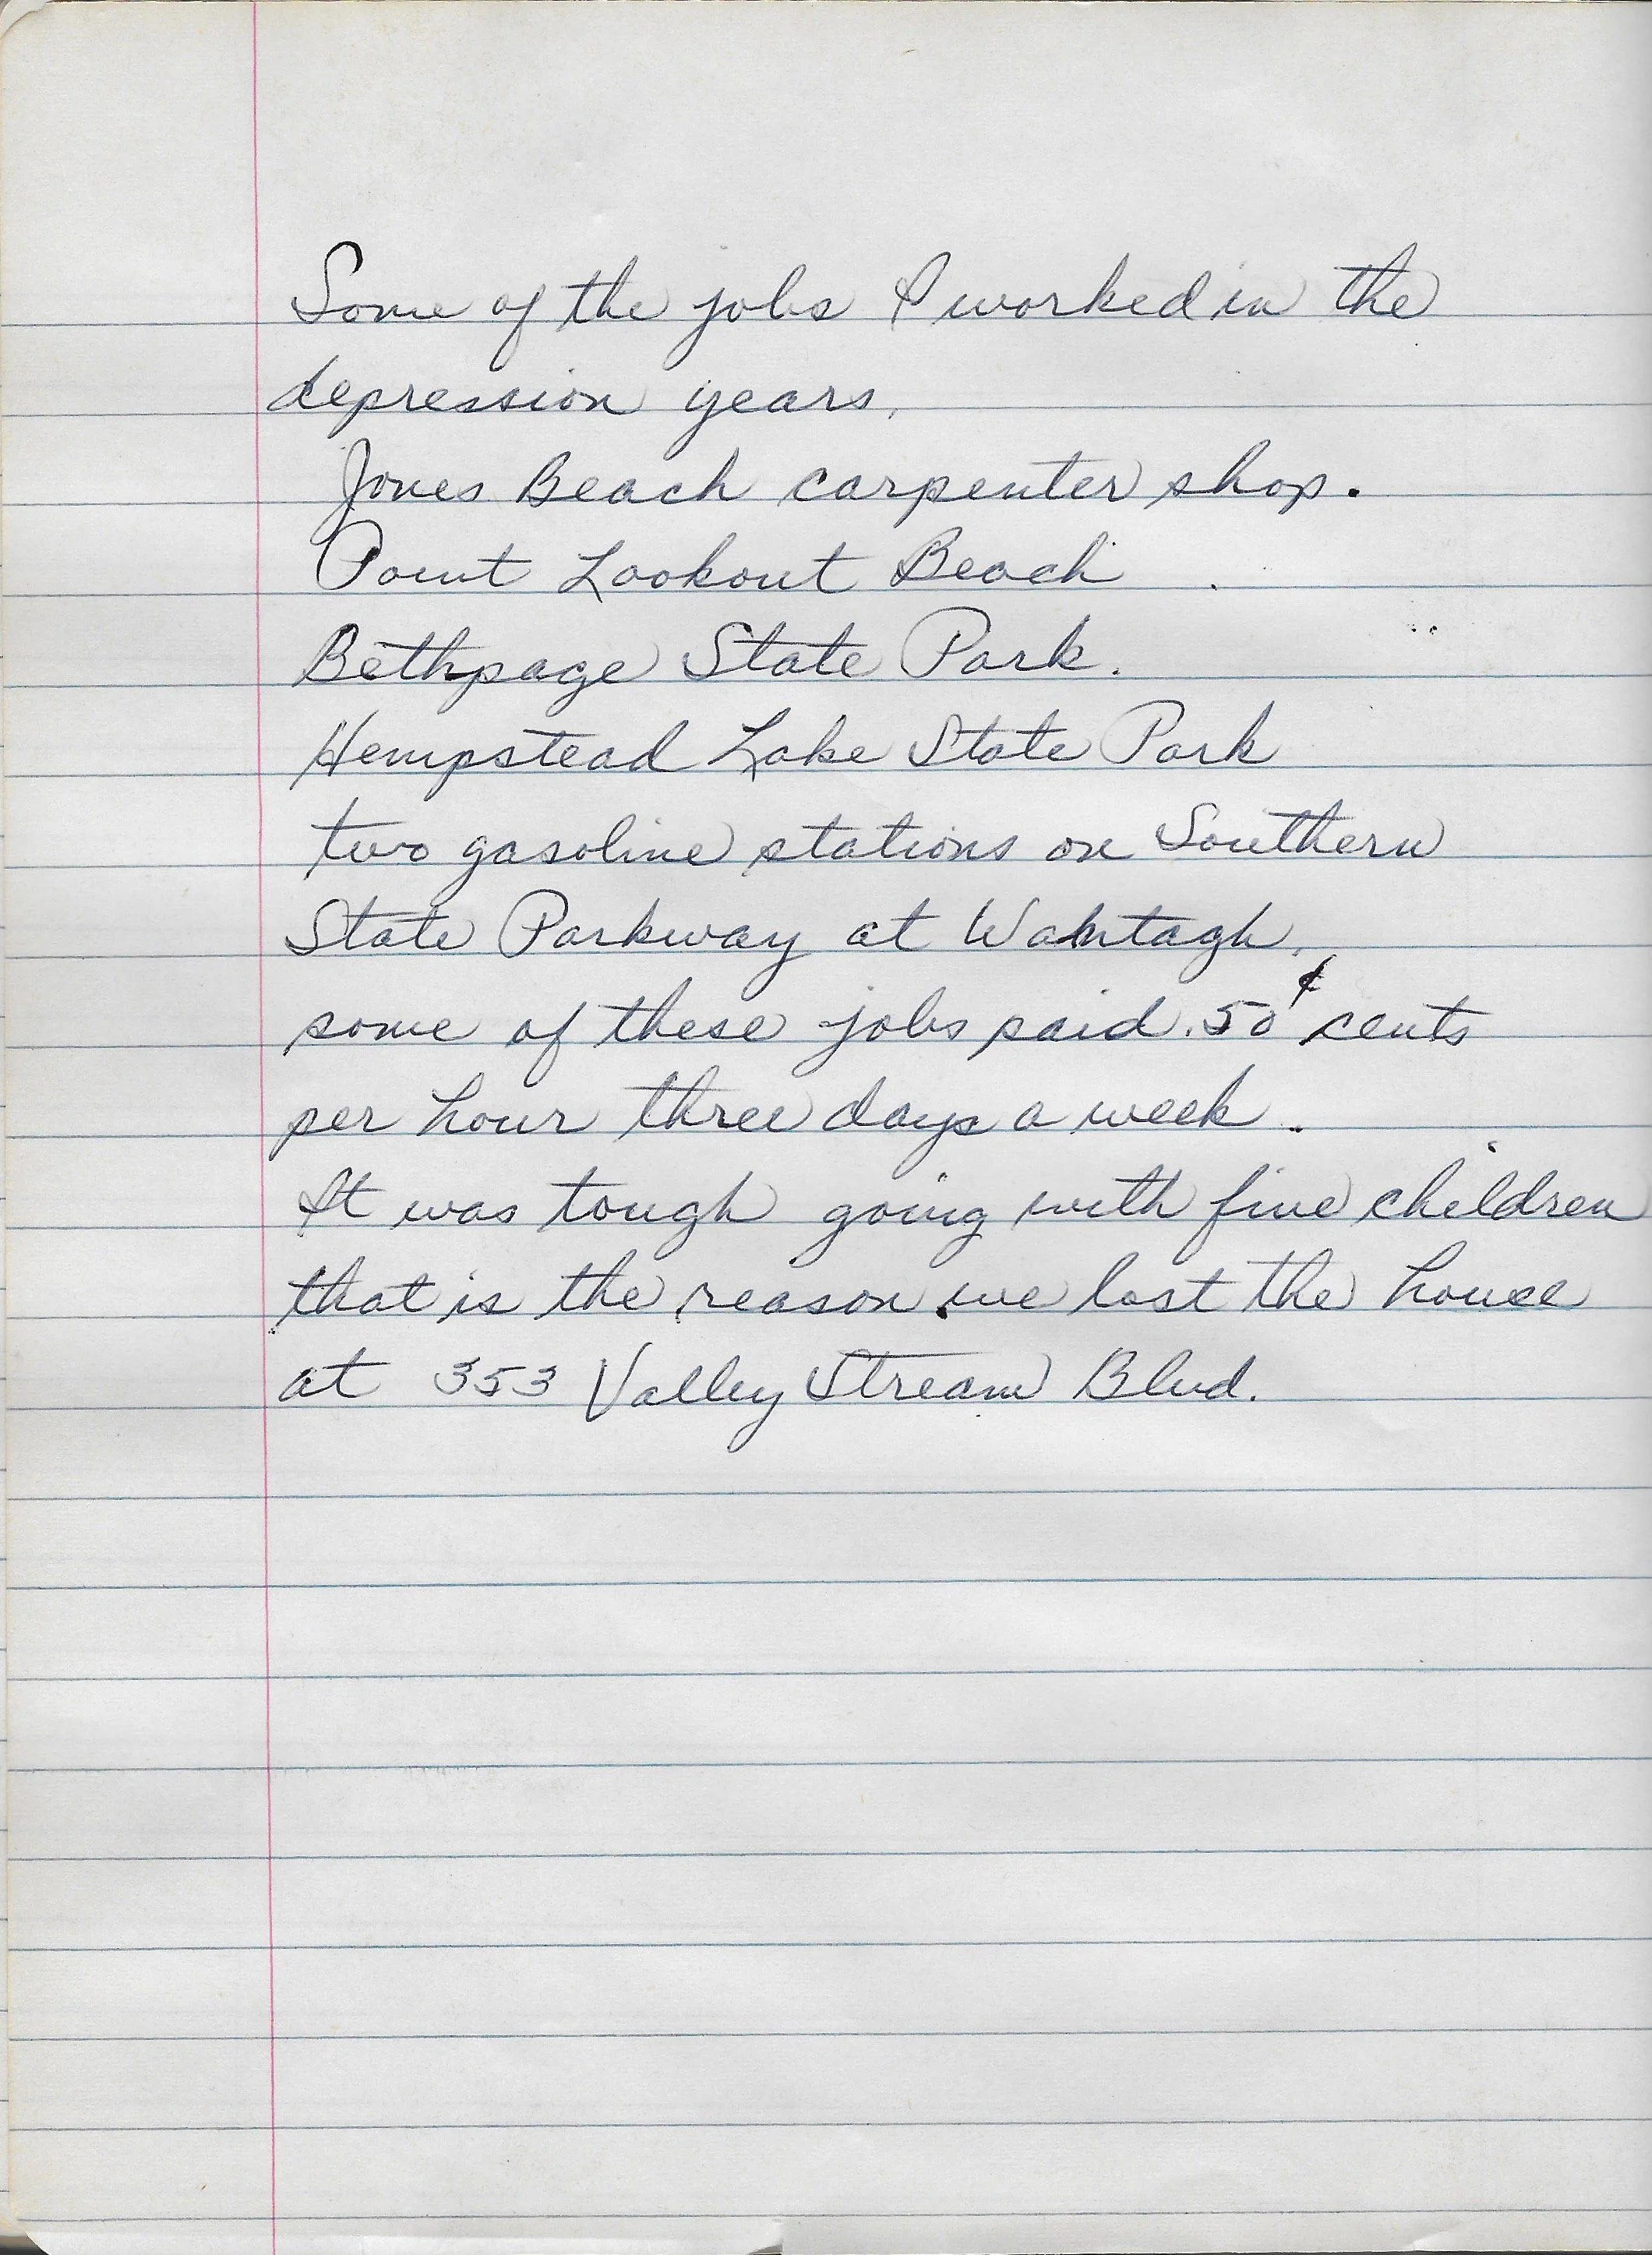 Some of the jobs I worked in the
depression years.
Jones Beach carpenter shop.
Point Lookout Beach
Bethpage State Park.
Hempstead Lake State Park
two gasoline stations on Southern
State Parkway at Wantagh.
some of these jobs paid .50¢ cents
per hour three days a week.
It was tough going with five children
that is the reason we lost the house
at 353 Valley Stream Blvd.